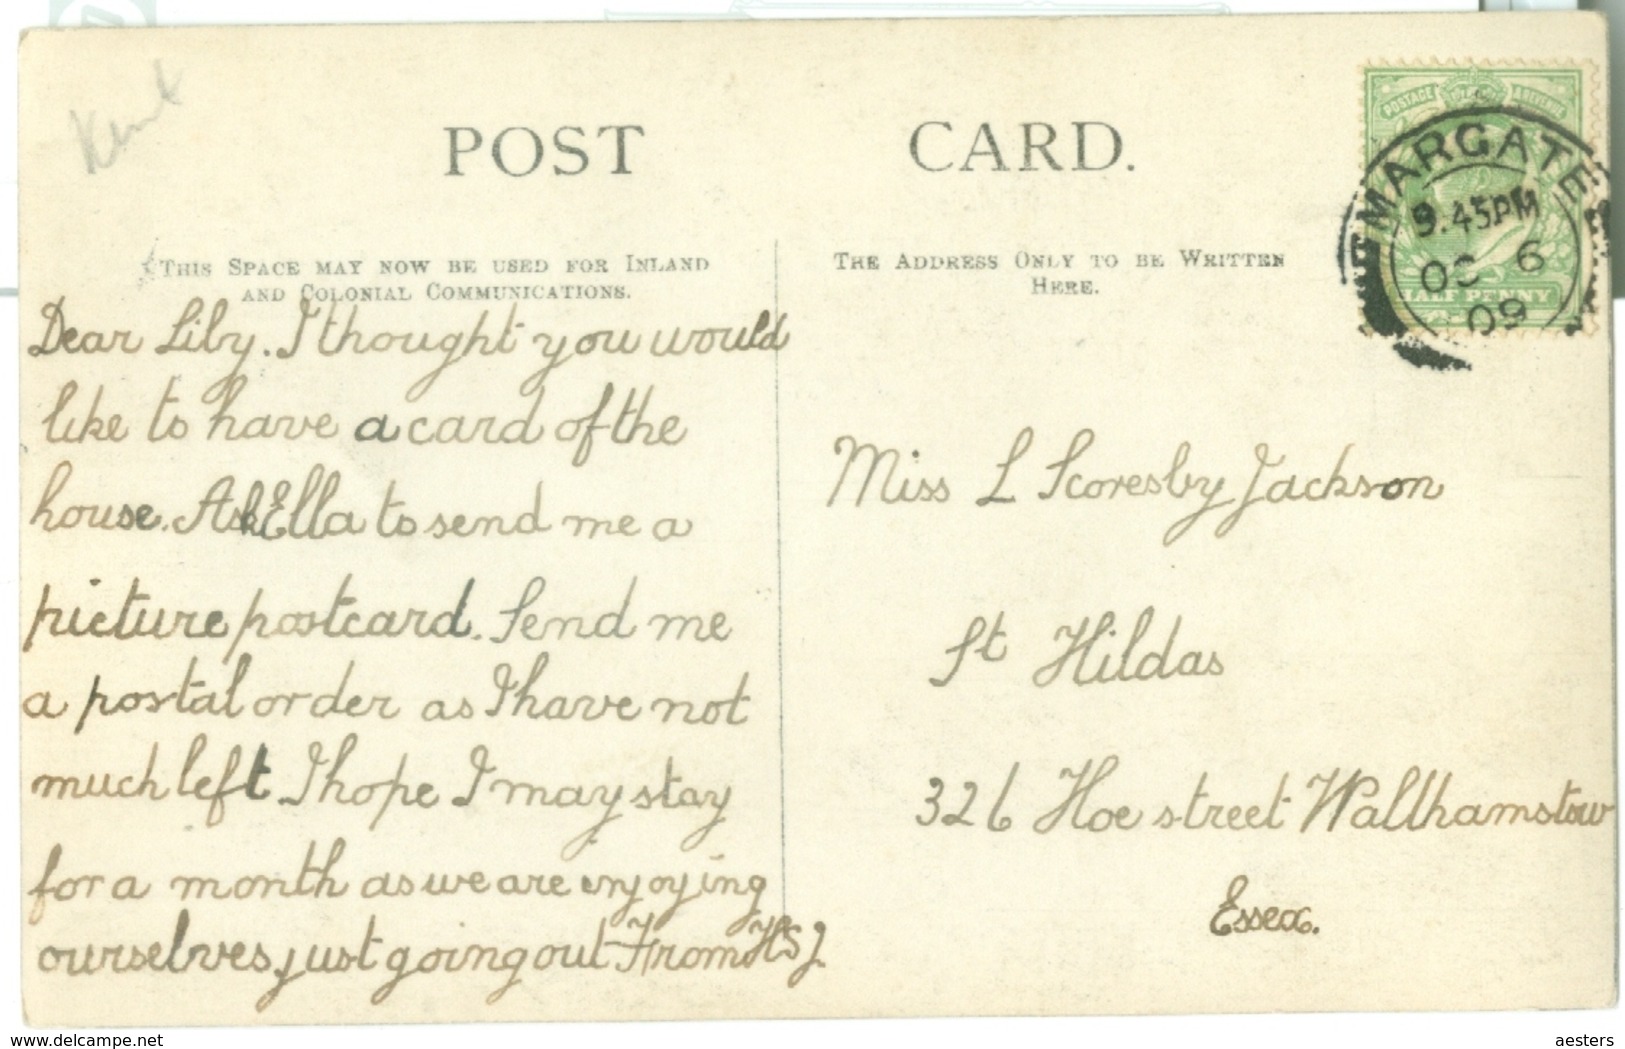 Kent
POST CARD.
THIS SPACE MAY NOW BE USED FOR INLAND
AND COLONIAL COMMUNICATIONS.
THE ADDRESS ONLY TO BE WRITTEN
HERE.
POSTAGE REVENUE
HALF PENNY
MARGATE
9.45PM
OC 6
09
Dear Lily. I thought you would
like to have a card of the
house. Ask Ella to send me a
picture postcard. Send me
a postal order as I have not
much left. I hope I may stay
for a month as we are enjoying
ourselves, just going out From HSJ
Miss L Scoresby Jackson
St Hildas
326 Hoe street Walthamstow
Essex.
www.delcampe.net
aesters